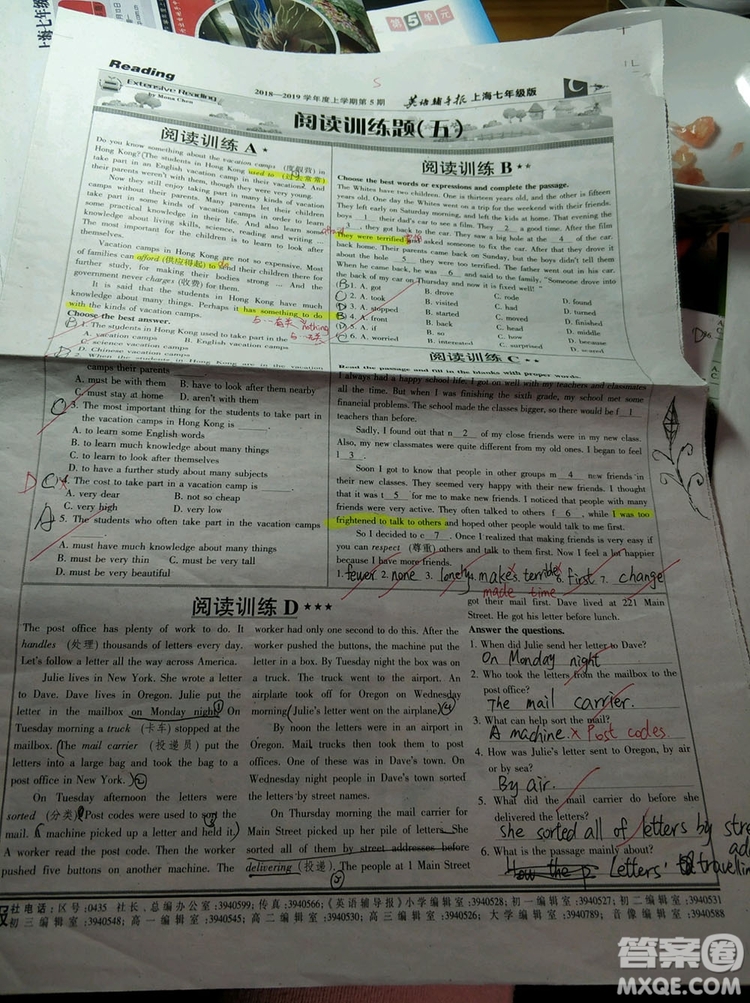 第5单元
Reading
Extensive Reading
by Mona Chen
2018—2019 学年度上学期第 5 期
英语辅导报 上海七年级版
阅读训练题(五)
阅读训练 A ★
Do you know something about the vacation camps (度假营) in
Hong Kong? The students in Hong Kong used to (过去常常)
take part in an English vacation camp in their vacations. And
their parents weren't with them, though they were very young.
Now they still enjoy taking part in many kinds of vacation
camps without their parents. Many parents let their children
take part in some kinds of vacation camps in order to learn
some practical knowledge in their life. And also learn some
knowledge about talking skills, science, reading and writing ...
The most important for the children is to learn to look after
themselves.
Vacation camps in Hong Kong are not so expensive. Most
of families can afford (供应得起) to send their children there for
further study, for making their bodies strong ... And the
government never charges (收费) for them.
It is said that the students in Hong Kong have much
knowledge about many things. Perhaps it has something to do
with the kinds of vacation camps.
与…有关 nothing
与…无关
Choose the best answer.
1. The students in Hong Kong used to take part in the
A. vacation camps B. English vacation camps
C. science vacation camps
D. Chinese vacation camps
2. When the students in Hong Kong are in the vacation
camps their parents
A. must be with them B. have to look after them nearby
C. must stay at home D. aren't with them
C 3. The most important thing for the students to take part in
the vacation camps in Hong Kong is
A. to learn some English words
B. to learn much knowledge about many things
C. to learn to look after themselves
D. to have a further study about many subjects
D C 4. The cost to take part in a vacation camp is
A. very dear B. not so cheap
C. very high D. very low
A 5. The students who often take part in the vacation camps
A. must have much knowledge about many things
B. must be very thin C. must be very tall
D. must be very beautiful
阅读训练 B ★★
Choose the best words or expressions and complete the passage.
The Whites have two children. One is thirteen years old, and the other is fifteen
years old. One day the Whites went on a trip for the weekend with their friends.
They left early on Saturday morning, and left the kids at home. That evening the
boys 1 their dad's car to see a film. They 2 a good time. After the film
3, they got back to the car. They saw a big hole at the 4 of the car.
They were terrified and asked someone to fix the car. After that they drove it
back home. Their parents came back on Sunday, but the boys didn't tell them
about the hole 5 they were too terrified. The father went out in his car.
When he came back, he was 6 and said to the family, "Someone drove into
the back of my car on Thursday and now it is fixed well!"
1. A. got B. drove C. rode D. found
2. A. took B. visited C. had D. turned
3. A. stopped B. started C. moved D. finished
4. A. front B. back C. head D. middle
5. A. if B. so C. how D. because
6. A. worried B. interested C. surprised D. scared
阅读训练 C ★★
Read the passage and fill in the blanks with proper words.
I always had a happy school life. I got on well with my teachers and classmates
all the time. But when I was finishing the sixth grade, my school met some
financial problems. The school made the classes bigger, so there would be f 1
teachers than before.
Sadly, I found out that n 2 of my close friends were in my new class.
Also, my new classmates were quite different from my old ones. I began to feel
l 3 .
Soon I got to know that people in other groups m 4 new friends in
their new classes. They seemed very happy with their new friends. I thought
that it was t 5 for me to make new friends. I noticed that people with many
friends were very active. They often talked to others f 6 , while I was too
frightened to talk to others and hoped other people would talk to me first.
So I decided to c 7 . Once I realized that making friends is very easy if
you can respect (尊重) others and talk to them first. Now I feel a lot happier
because I have more friends.
1. fewer 2. none 3. lonely 4. make 5. terrible 6. first 7. change
made time
阅读训练 D ★★★
The post office has plenty of work to do. It
handles (处理) thousands of letters every day.
Let's follow a letter all the way across America.
Julie lives in New York. She wrote a letter
to Dave. Dave lives in Oregon. Julie put the
letter in the mailbox on Monday night. On
Tuesday morning a truck (卡车) stopped at the
mailbox. The mail carrier (投递员) put the
letters into a large bag and took the bag to a
post office in New York.
On Tuesday afternoon the letters were
sorted (分类). Post codes were used to sort the
mail. A machine picked up a letter and held it.
A worker read the post code. Then the worker
pushed five buttons on another machine. The
worker had only one second to do this. After the
worker pushed the buttons, the machine put the
letter in a box. By Tuesday night the box was on
a truck. The truck went to the airport. An
airplane took off for Oregon on Wednesday
morning (Julie's letter went on the airplane.)
By noon the letters were in an airport in
Oregon. Mail trucks then took them to post
offices. One of these was in Dave's town. On
Wednesday night people in Dave's town sorted
the letters by street names.
On Thursday morning the mail carrier for
Main Street picked up her pile of letters. She
sorted all of them by street addresses before
delivering (投递). The people at 1 Main Street
got their mail first. Dave lived at 221 Main
Street. He got his letter before lunch.
Answer the questions.
1. When did Julie send her letter to Dave?
On Monday night
2. Who took the letters from the mailbox to the
post office?
The mail carrier.
3. What can help sort the mail?
A machine. × Post codes
4. How was Julie's letter sent to Oregon, by air
or by sea?
By air.
5. What did the mail carrier do before she
delivered the letters?
She sorted all of letters by stre
6. What is the passage mainly about?
Letters' travellin
社电话:区号:0435 社长、总编办公室:3940599;传真:3940566;《英语辅导报》小学编辑室:3940528;初一编辑室:3940530;初二编辑室:3940531
初三编辑室:3940548;高一编辑室:3940545;高二编辑室:3940530;高三编辑室:3940526;大学编辑室:3940789;音像编辑室:3940588
答案圈
MXQE.COM